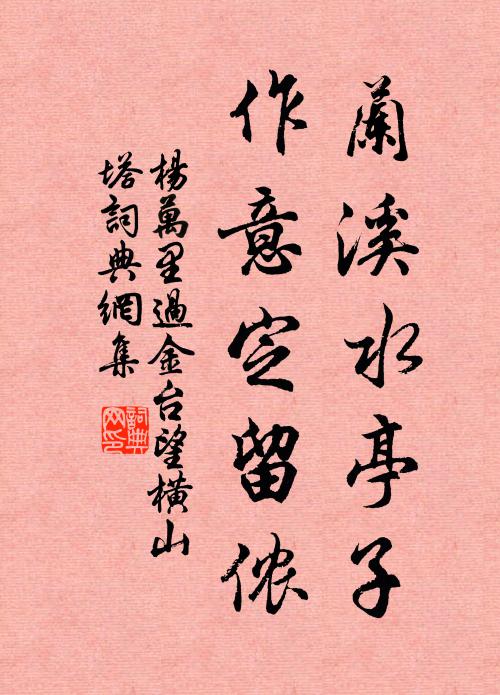 蘭溪水亭子
作意定留侬
楊萬里過金台望橫山
塔詞典網集
詞典
网印